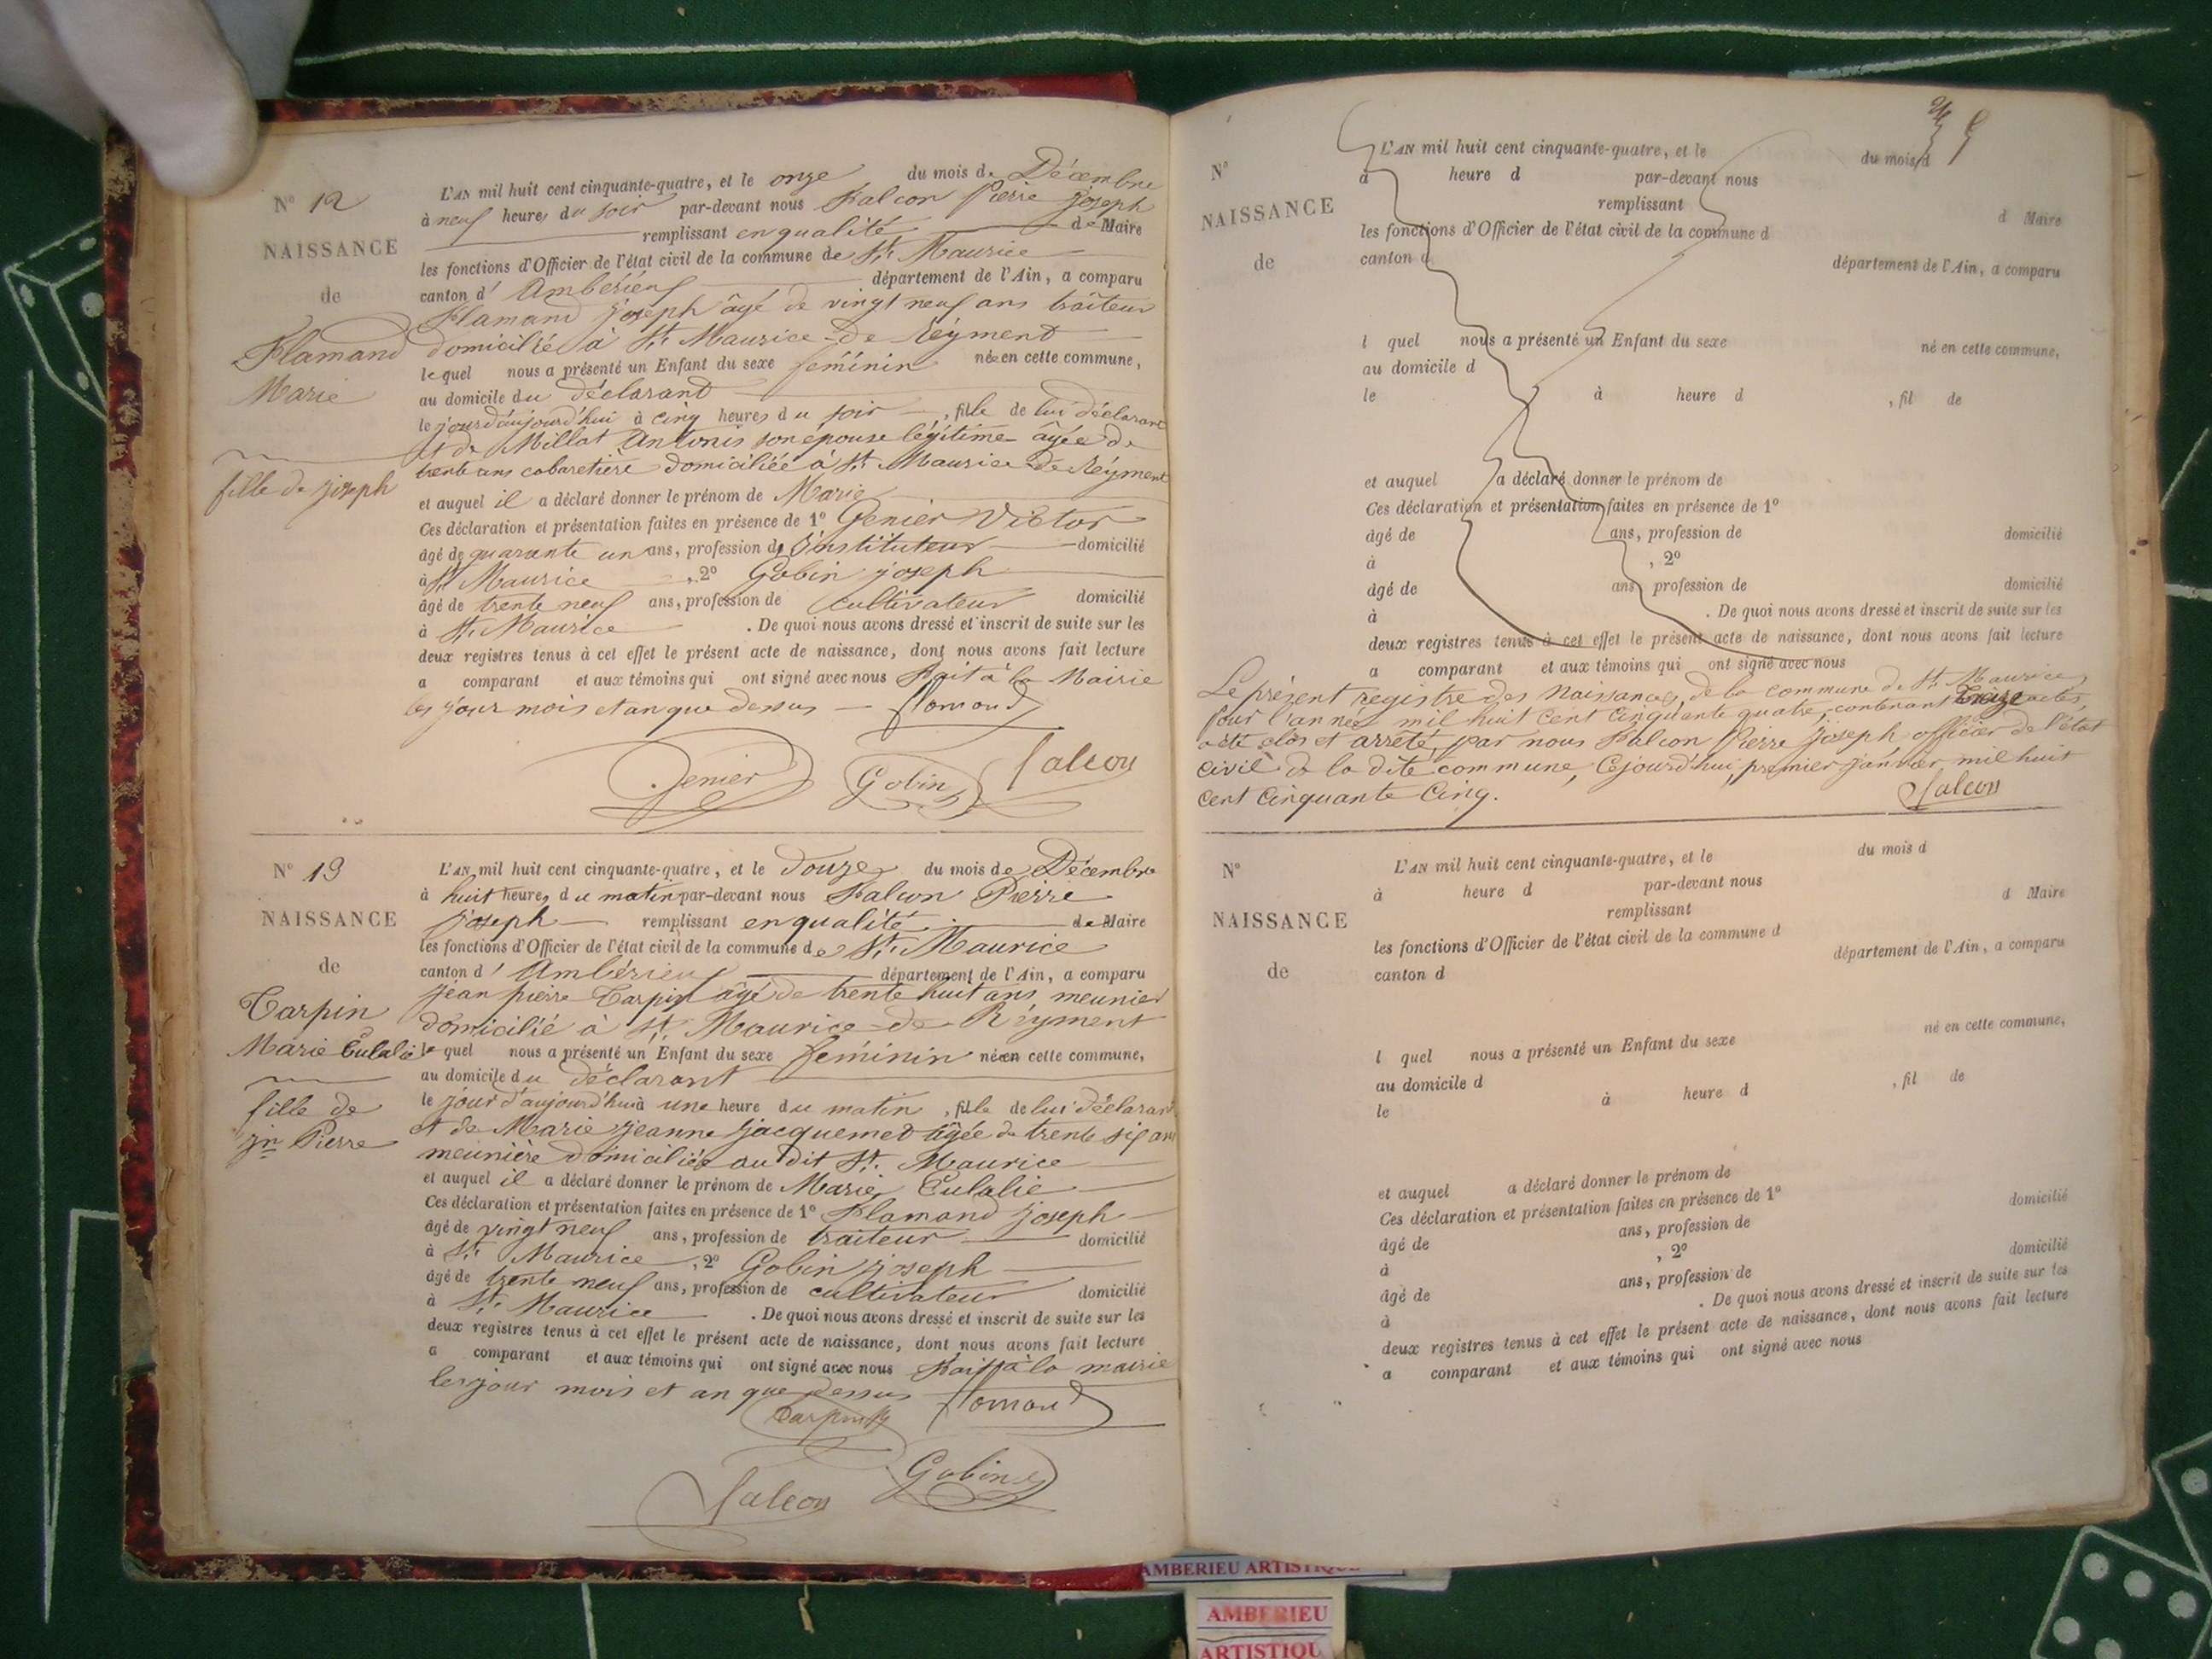 N° 12
NAISSANCE
de
Flamand
Marie
fille de joseph
L'AN mil huit cent cinquante-quatre, et le onze du mois de Décembre
à neuf heures du soir par-devant nous Falcon Pierre joseph
remplissant en qualité de Maire
les fonctions d'Officier de l'état civil de la commune de St. Maurice
canton d' Ambérieuf département de l'Ain, a comparu
Flamand joseph âgé de vingt neuf ans traiteur
domicilié à St. Maurice-de-Réyment
lequel nous a présenté un Enfant du sexe féminin née en cette commune,
au domicile du déclarant
le jourd'aujourd'hui à cinq heures du soir, fille de lui déclarant
et de Millat Antonis son épouse légitime âgée de
trente ans cabaretière domiciliée à St. Maurice-de-Réyment
et auquel il a déclaré donner le prénom de Marie
Ces déclaration et présentation faites en présence de 1° Genier Victor
âgé de quarante un ans, profession d'instituteur domicilié
à St Maurice, 2° Gobin joseph
âgé de trente neuf ans, profession de cultivateur domicilié
à St. Maurice. De quoi nous avons dressé et inscrit de suite sur les
deux registres tenus à cet effet le présent acte de naissance, dont nous avons fait lecture
a comparant et aux témoins qui ont signé avec nous Fait à la Mairie
les jour mois et an que dessus — flamand
Genier Gobin falcon
N° 13
NAISSANCE
de
Carpin
Marie Eulalie
fille de
jn Pierre
L'AN mil huit cent cinquante-quatre, et le douze du mois de Décembre
à huit heures du matin par-devant nous Falcon Pierre
joseph remplissant en qualité de Maire
les fonctions d'Officier de l'état civil de la commune de St. Maurice
canton d' Ambérieuf département de l'Ain, a comparu
jean pierre Carpin âgé de trente huit ans, meunier
domicilié à St. Maurice-de-Réyment
lequel nous a présenté un Enfant du sexe féminin née en cette commune,
au domicile du déclarant
le jour d'aujourd'hui à une heure du matin, fille de lui déclarant
et de Marie jeanne jacquemet âgée de trente six ans
meunière domiciliée au dit St. Maurice
et auquel il a déclaré donner le prénom de Marie, Eulalie
Ces déclaration et présentation faites en présence de 1° Flamand joseph
âgé de vingt neuf ans, profession de traiteur domicilié
à St. Maurice, 2° Gobin joseph
âgé de trente neuf ans, profession de cultivateur domicilié
à St. Maurice. De quoi nous avons dressé et inscrit de suite sur les
deux registres tenus à cet effet le présent acte de naissance, dont nous avons fait lecture
a comparant et aux témoins qui ont signé avec nous Fait à la mairie
les jour mois et an que dessus flamand
Falcon Gobin
N°
NAISSANCE
de
L'AN mil huit cent cinquante-quatre, et le du mois d
à heure d par-devant nous
remplissant d Maire
les fonctions d'Officier de l'état civil de la commune d
canton d département de l'Ain, a comparu
l quel nous a présenté un Enfant du sexe né en cette commune,
au domicile d
le à heure d , fil de
et auquel a déclaré donner le prénom de
Ces déclaration et présentation faites en présence de 1°
âgé de ans, profession de domicilié
à , 2°
âgé de ans, profession de domicilié
à . De quoi nous avons dressé et inscrit de suite sur les
deux registres tenus à cet effet le présent acte de naissance, dont nous avons fait lecture
a comparant et aux témoins qui ont signé avec nous
Le présent registre des Naissances, de la commune de St. Maurice,
pour l'année mil huit cent cinquante quatre, contenant treize actes,
a été clos et arrêté, par nous Falcon Pierre joseph officier de l'état
civil de la dite commune, Cejourd'hui, premier janvier mil huit
cent Cinquante Cinq. Falcon
N°
NAISSANCE
de
L'AN mil huit cent cinquante-quatre, et le du mois d
à heure d par-devant nous
remplissant d Maire
les fonctions d'Officier de l'état civil de la commune d
canton d département de l'Ain, a comparu
l quel nous a présenté un Enfant du sexe né en cette commune,
au domicile d
le à heure d , fil de
et auquel a déclaré donner le prénom de
Ces déclaration et présentation faites en présence de 1°
âgé de ans, profession de domicilié
à , 2°
âgé de ans, profession de domicilié
à . De quoi nous avons dressé et inscrit de suite sur les
deux registres tenus à cet effet le présent acte de naissance, dont nous avons fait lecture
a comparant et aux témoins qui ont signé avec nous
AMBERIEU ARTISTIQUE
AMBERIEU
ARTISTIQU